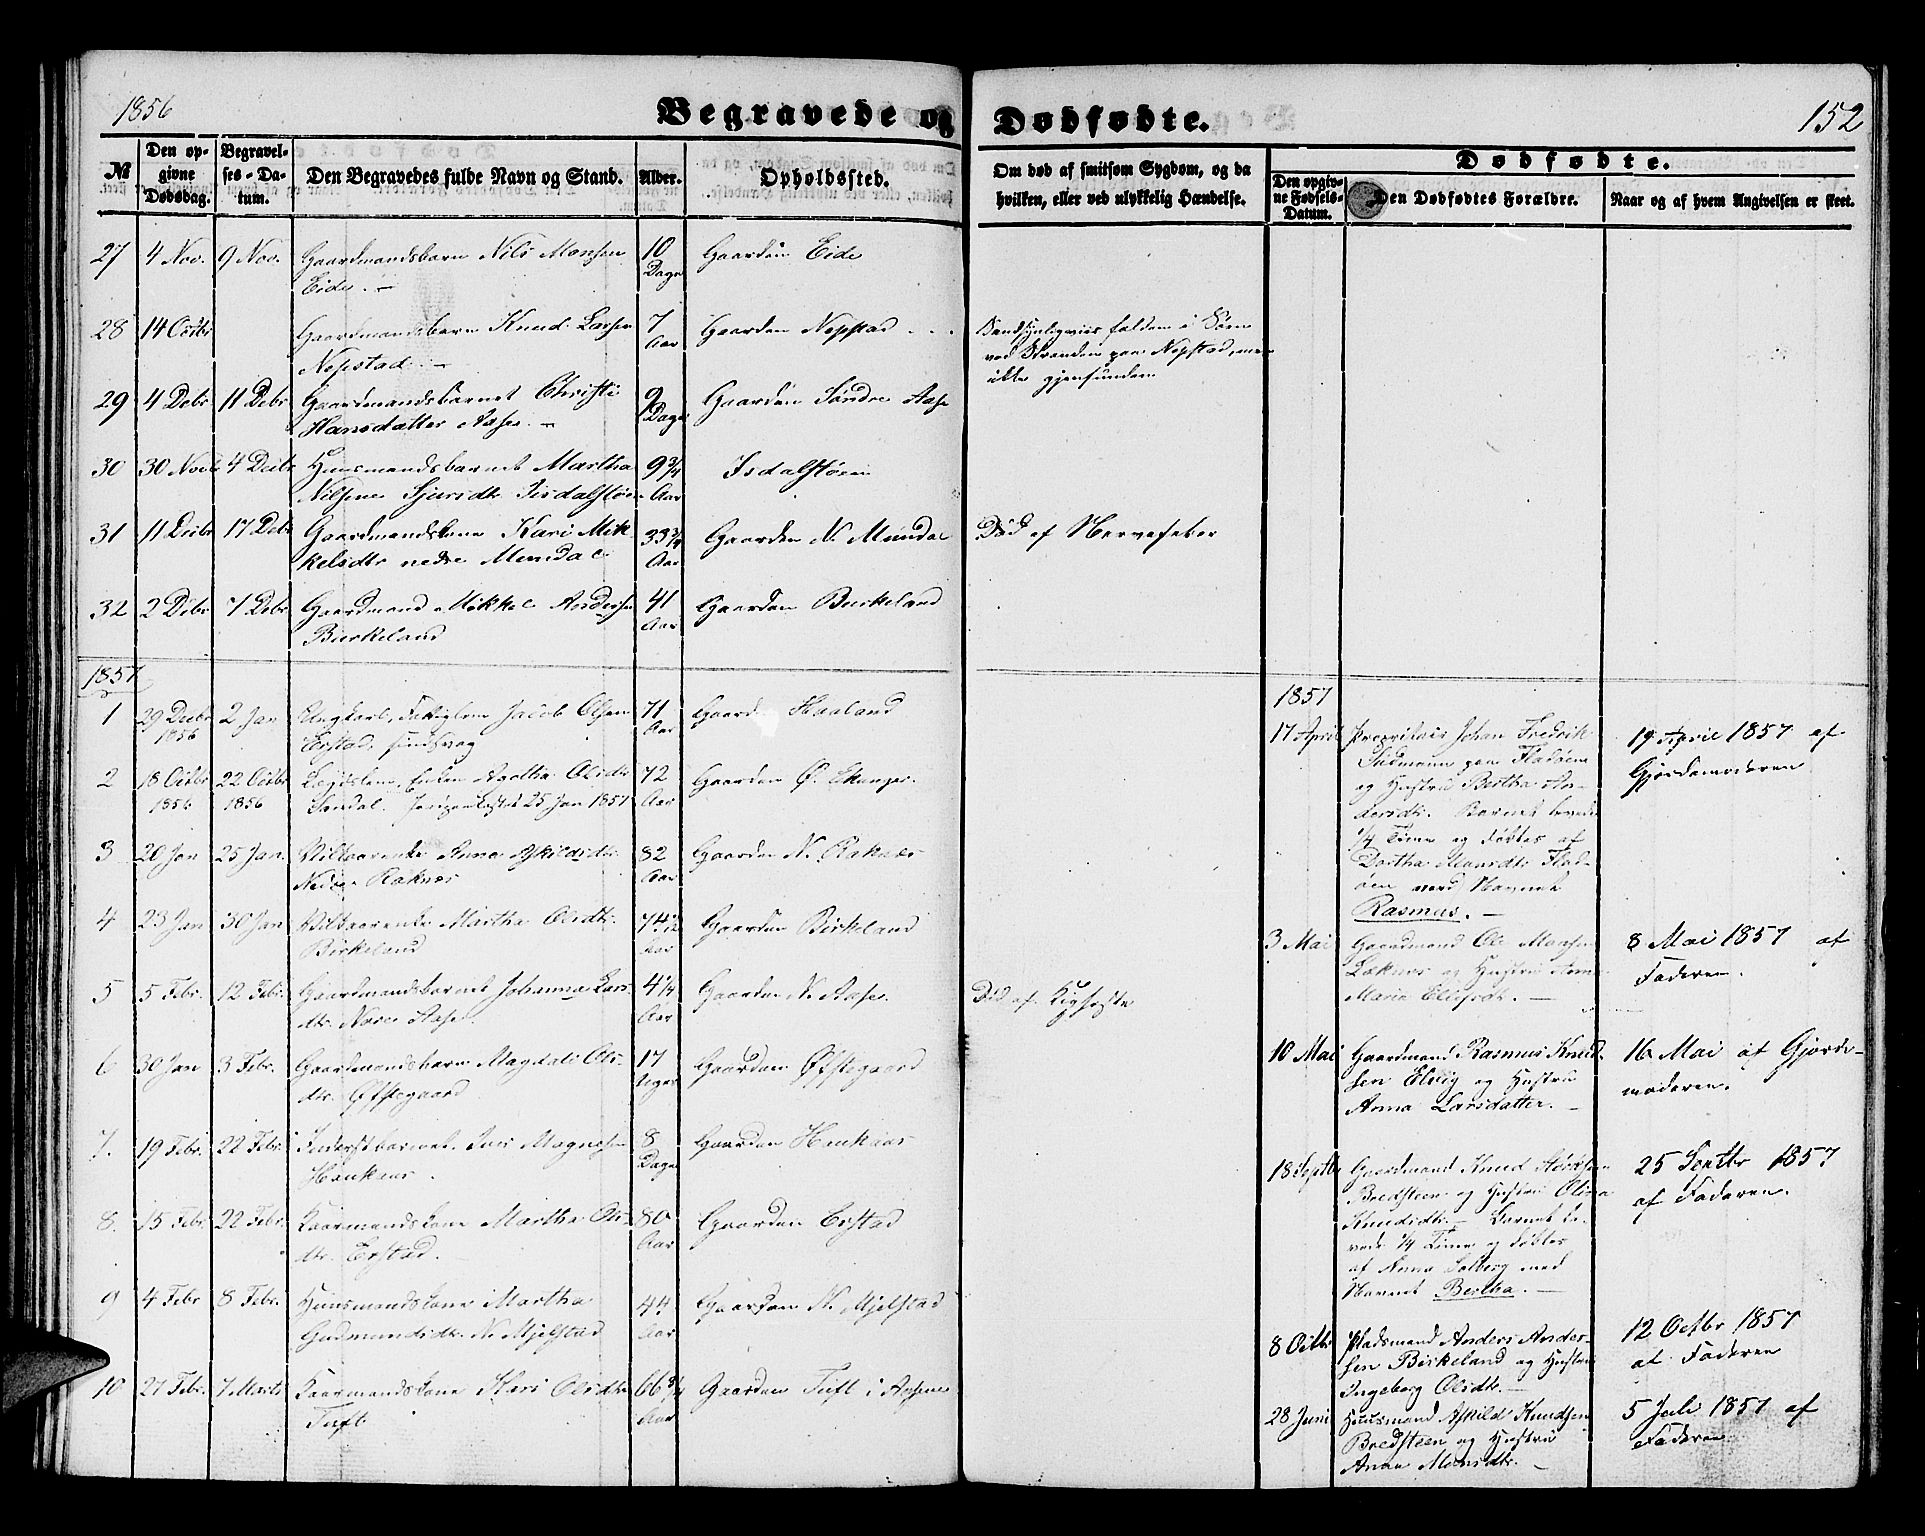 1856
Begravede og
Dødfødte.
152
№
Den opgivne Dødsdag.
Begravelses-Datum.
Den Begravedes fulde Navn og Stand.
Alder.
Opholdssted.
Om død af smitsom Sygdom, og da
hvilken, eller ved ulykkelig Hændelse.
Dødfødte.
Den opgivne Fødsels-Datum.
Den Dødfødtes Forældre.
Naar og af hvem Angivelsen er skeet.
27 4 Nov. 9 Nov. Gaardmandsbarn Nils Monsen 10 Gaarden Eide
Eide. — Dage
28 14 Octbr Gaardmandsbarn Knud Larsen 7 Gaarden Nepstad
Nepstad. — Aar
Sandsynligviis falden i Søen
ved Stranden paa Nepstad, men
ikke gjenfunden
29 4 Debr 11 Debr Gaardmandsbarnet Christi 9 Gaarden Søndre Aase
Hansdatter Aase. — Dage
30 30 Novb 4 Decbr Huusmandsbarnet Martha 9 3/4 Isdalstøen
Nilsine Sjursdtr Isdalstøen Aar
31 11 Decbr 17 Debr Gaardmandskone Kari Mik 33 3/4 Gaarden N. Mundal Død af Nervefeber
kelsdtr nedre Mundal Aar
32 2 Debr 7 Debr Gaardmand Mikkel Andersen 41 Gaarden Birkeland
Birkeland Aar
1857
1 29 Decbr 2 Jan Ungkarl, Jacob Olsen 71 Gaarden Haaland
1856 Erstad, sindssvag Aar
2 18 Octbr 22 Octbr Enken Agatha Olsdtr 72 Gaarden Ø. Ekanger
1856 1856 Sandal. Jordpaakastet 25 Jan 1857 Aar
3 20 Jan 25 Jan. Vilkaarenke Anna Askildsdtr 82 Gaarden N. Raknæs
Nedre Raknæs Aar
4 23 Jan 30 Jan Vilkaarenke Martha Olsdtr. 74 1/2 Gaarden Birkeland
Birkeland Aar
5 5 Febr. 12 Febr. Gaardmandsbarnet Johanna Lars 4 1/4 Gaarden N. Aase.
dtr. Nore Aase. Aar
6 30 Jan 3 Febr. Gaardmandsbarn Magdali Ols- 17 Gaarden Øfstegaard
dtr. Øfstegaard Uger
7. 19 Febr. 22 Febr. Inderstbarnet Magnesen 8 Gaarden Haukaas
Dage
8. 15 Febr. 22 Febr. Kaarmandskone Martha Ols- 80 Gaarden Erstad
dtr. Erstad. Aar
9 4 Febr 8 Febr. Huusmandskone Martha 44 Gaarden N. Mjelstad
Gudmundsdtr. N. Mjelstad Aar
10 27 Febr. 7 Marts Kaarmandskone Kari Olsdtr 66 3/4 Gaarden Tuft i Aasene
Tuft Aar
1857
17 April Johan Fredrik
paa Fladøen
og Hustru Bertha An-
dersdtr. Barnet levede
1/4 Time og døbtes af
Dortha Monsdtr Flad-
øen med Navnet
Rasmus. —
19 April 1857 af
Gjordemoderen
3 Mai Gaardmand Ole Monsen
og Hustru Anne
Marie —
8 Mai 1857 af
Faderen.
10 Mai Gaardmand Rasmus Knud-
sen Elvig og Hustru
Anna Larsdatter. —
16 Mai af Gjorde-
moderen.
18 Septbr Gaardmand Knud
Bredsteen og Hustru Olina
Knudsdtr. — Barnet le-
vede 1/4 Time og døbtes
af Anna Solberg med
Navnet Bertha. —
25 Septbr 1857
af Faderen.
8 Octbr Pladsmand Anders Ander-
sen Birkeland og Hustru
Ingeborg Olsdtr. —
12 Octbr 1857
af Faderen
28 Juni Huusmand Askild Knudsen
Bredsteen og Hustru
Anna Monsdtr. —
5 Juli 1857 af
Faderen